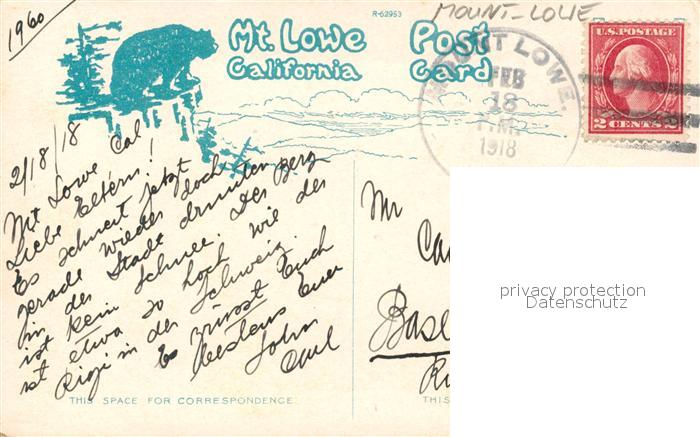 1960
R-62953
MOUNT-LOWE
Mt. Lowe
California
Post
Card
MOUNT LOWE.
FEB
18
P.M.
1918
U.S. POSTAGE
2 CENTS 2
2/18/18
Mt Lowe Cal
Liebe Eltern!
Es schneit jetzt
gerade wieder doch
in der Stadt drunten
ist kein Schnee. Der Berg
ist etwa so hoch wie der
Rigi in der Schweiz.
Es grüsst Euch
bestens Euer
Sohn
Carl
Mr
Ca
Base
THIS SPACE FOR CORRESPONDENCE
THIS
privacy protection
Datenschutz